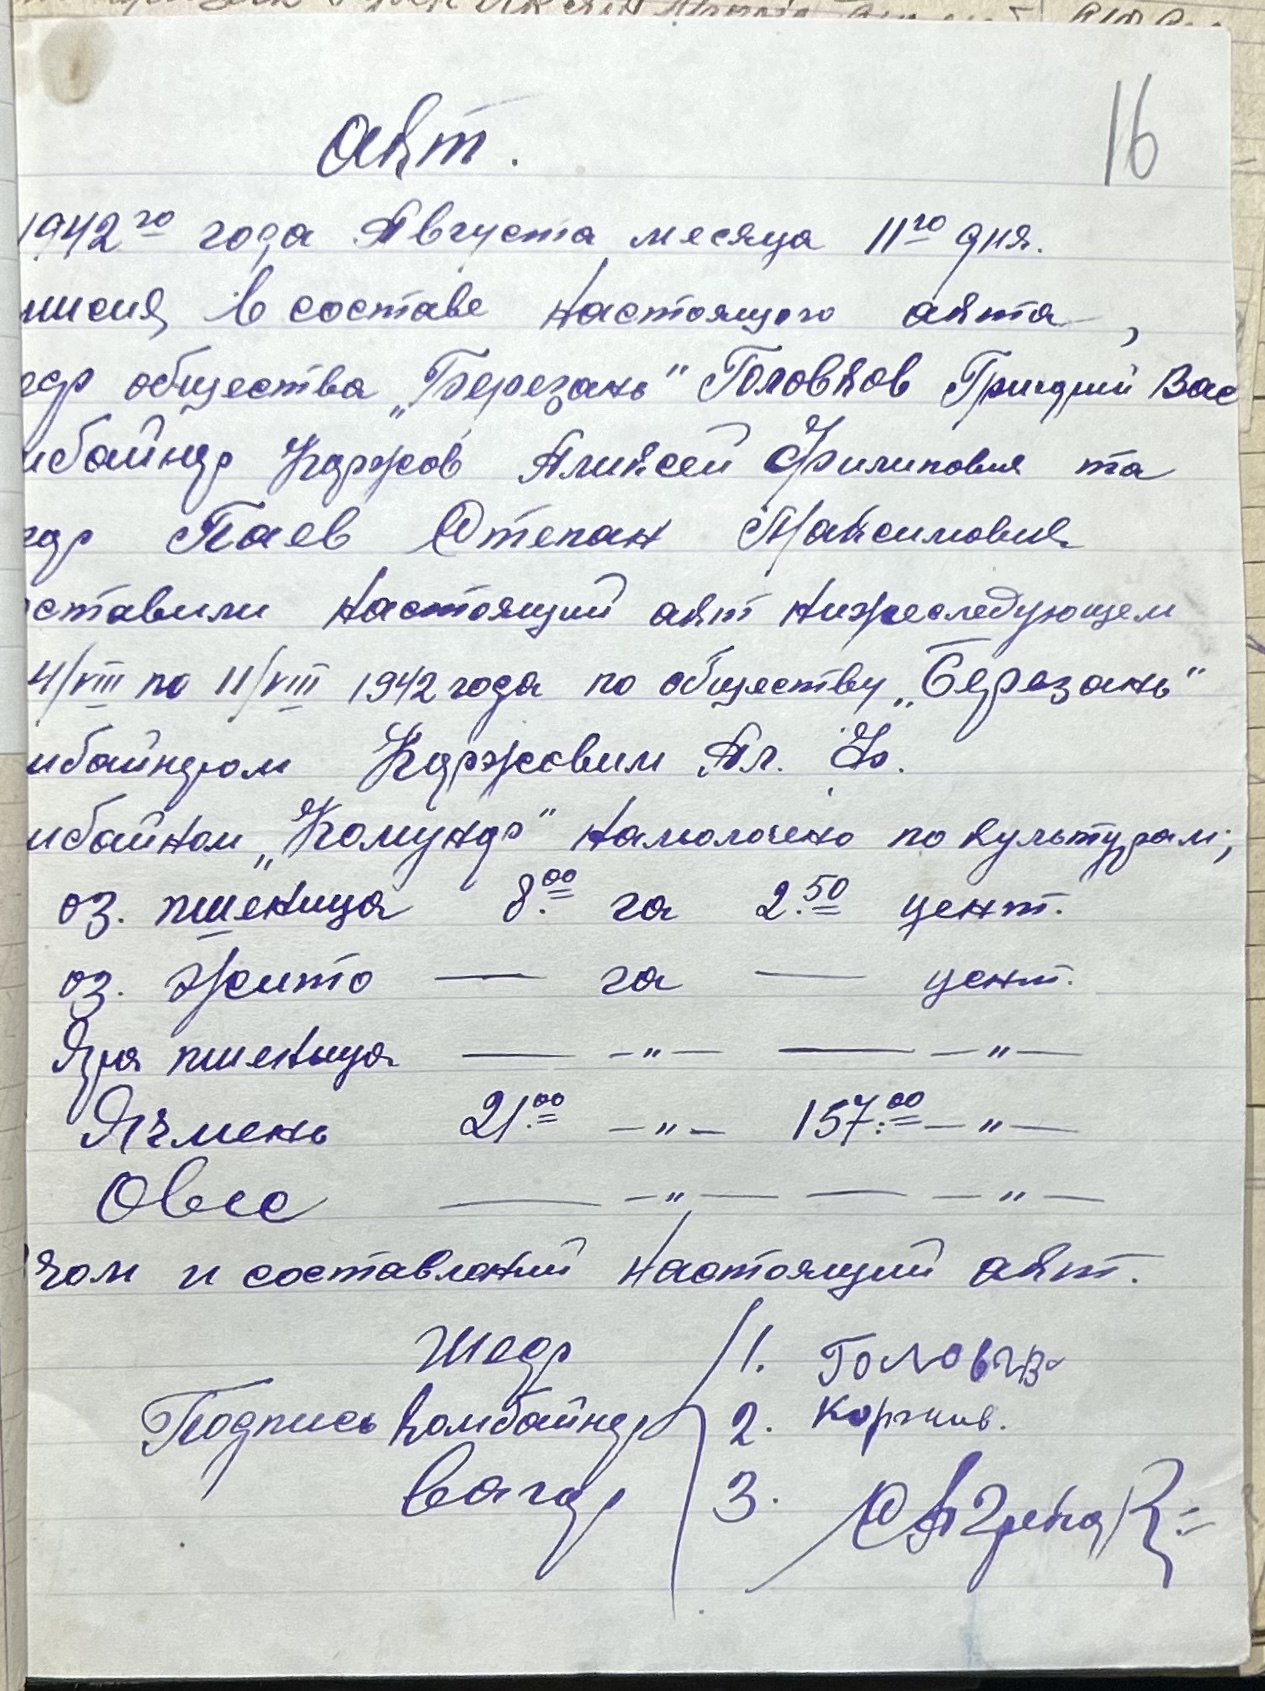 16
Акт.
1942го года Августа месяца 11го дня.
мисия в составе настоящого акта,
едр общества "Березань" Головков Григорий Вас
мбайнер Коржов Аликсей Филипович та
гар Паев Степан Максимович
оставили настоящий акт нижеследующем
4/VIII по 11/VIII 1942 года по обществу "Березань"
мбайнером Коржовим Ал. Ф.
мбайном "Комунар" намолочено по культурам;
оз. пшеница 8.00 га 2.50 цент.
оз. жито — га — цент.
Яра пшеныца — —"— — —"—
Ячмень 21.00 —"— 157.00 —"—
Овес — —"— — —"—
чом и составлений настоящий акт.
Шедр 1. Головк
Подпись комбайнер 2. Коржив.
Вагар 3.